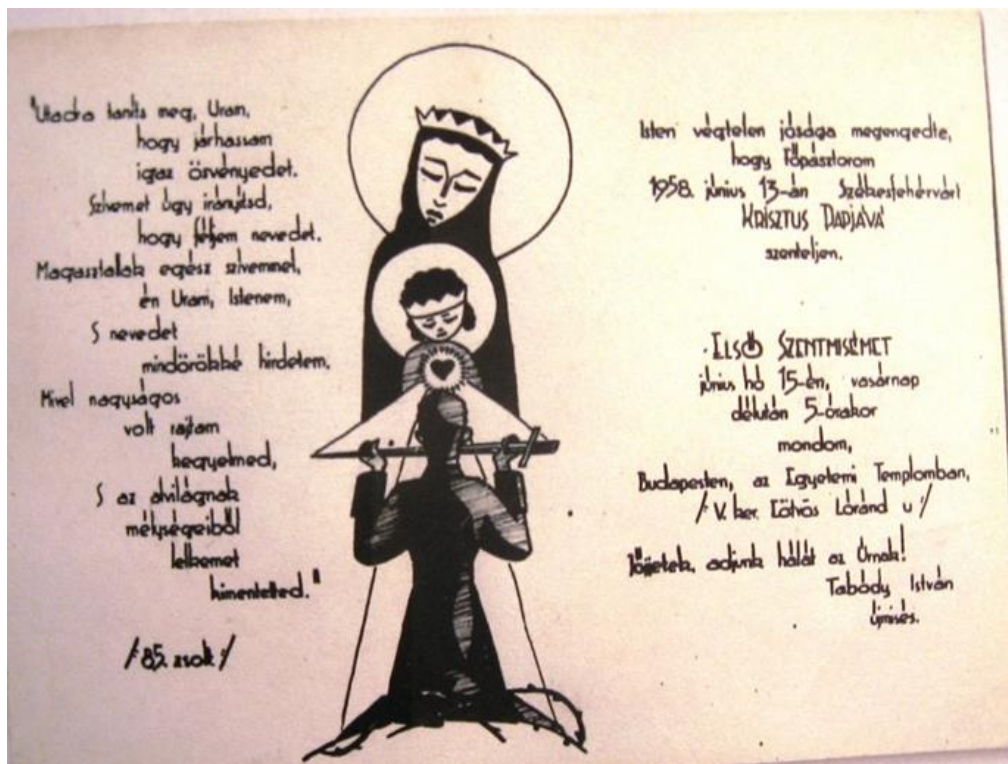 "Utadra taníts meg, Uram,
hogy járhassam
igaz ösvényedet.
Szivemet úgy irányitsd,
hogy féljem nevedet.
Magasztallak egész szivemmel,
én Uram, Istenem,
S nevedet
mindörökké hirdetem,
Mivel nagyságos
volt rajtam
kegyelmed,
S az alvilágnak
mélységeiből
lelkemet
kimentetted."
/:85. zsolt:/
Isten végtelen jósága megengedte,
hogy Főpásztorom
1958. június 13-án Székesfehérvárt
KRISZTUS PAPJÁVÁ
szenteljen.
ELSŐ SZENTMISÉMET
június hó 15-én, vasárnap
délután 5-órakor
mondom,
Budapesten, az Egyetemi Templomban,
/:V. ker. Eötvös Lóránd u:/
Jőjjetek, adjunk hálát az Úrnak!
Tabódy István
újmisés.